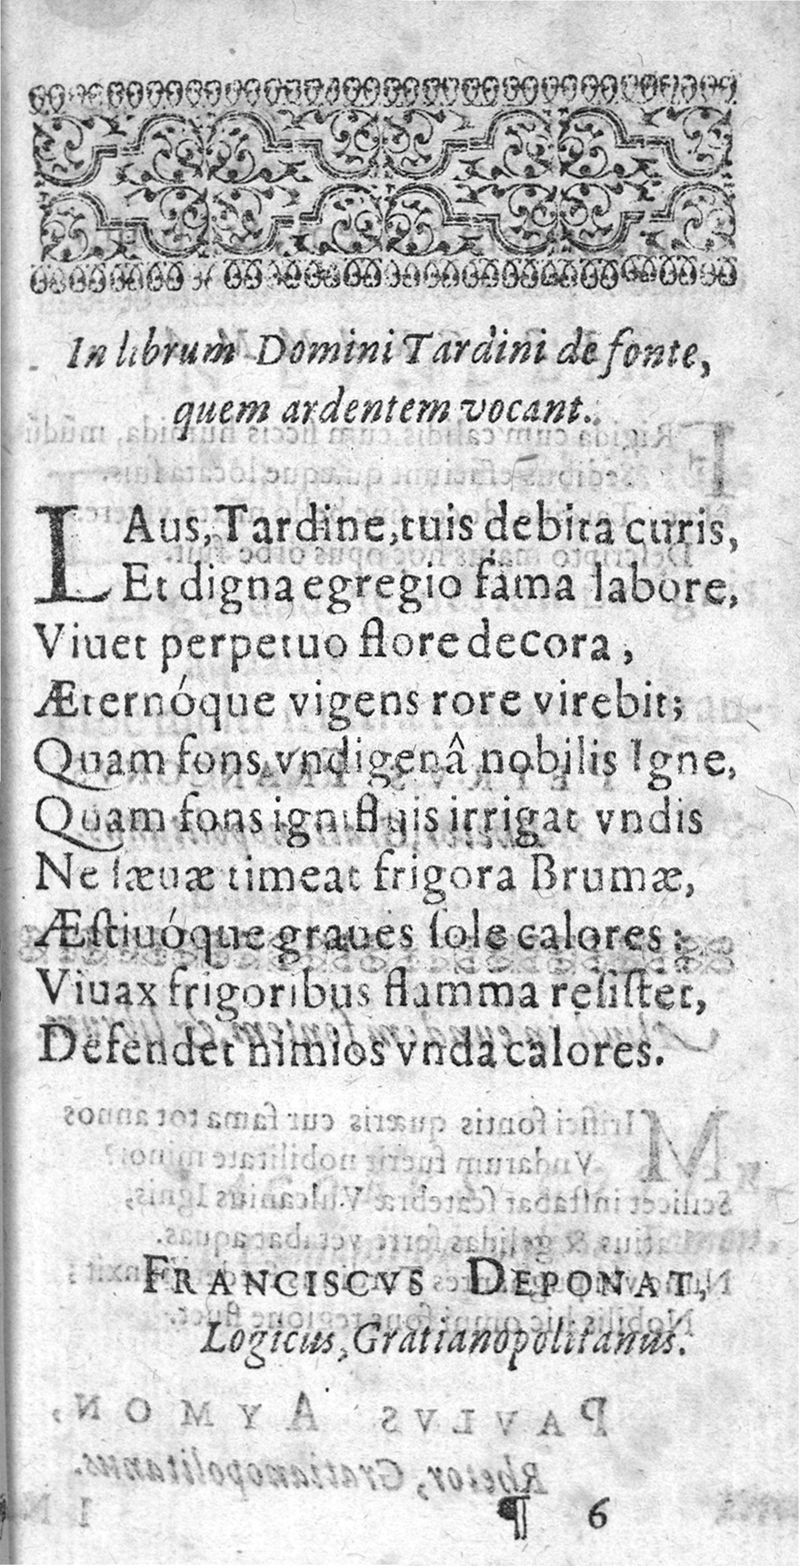 In librum Domini Tardini de fonte,
quem ardentem vocant.
LAus, Tardine, tuis debita curis,
Et digna egregio fáma labore,
Viuet perpetuo flore decora,
Æternóque vigens rore virebit;
Quam fons vndigenâ nobilis Igne,
Quam fons ignifluis irrigat vndis
Ne sæuæ timeat frigora Brumæ,
Æſtiuóque graues ſole calores:
Viuax frigoribus flamma reſiſtet,
Defendet nimios vnda calores.
FRANCISCVS DEPONAT,
Logicus, Gratianopolitanus.
¶ 6